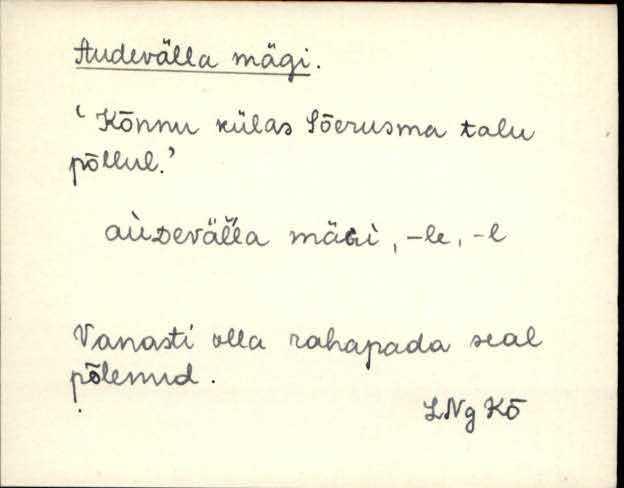 Audevälla mägi.
‘Kõnnu külas Sõerusma talu
põllul.’
aùᴅevä̆lla mäɢì, -le, -l
Vanasti olla rahapada seal
põlenud.
LNg Kõ